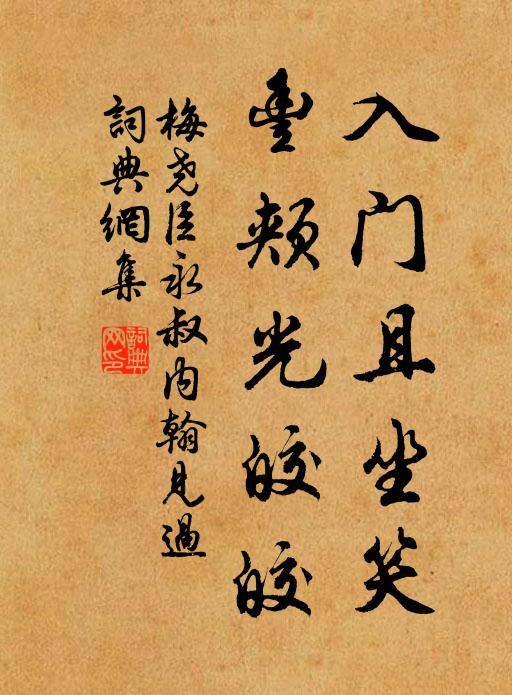 入门且坐笑
豊頬光皎皎
梅尧臣永叔内翰見過
詞典網集
詞典
网印